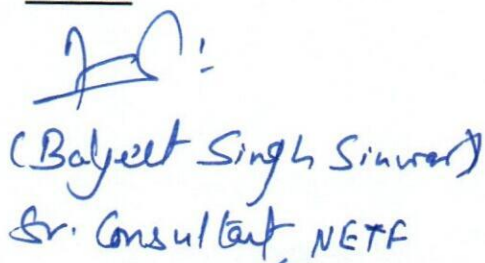 (Baljeet Singh Sinwar)
Sr. Consultant, NETF